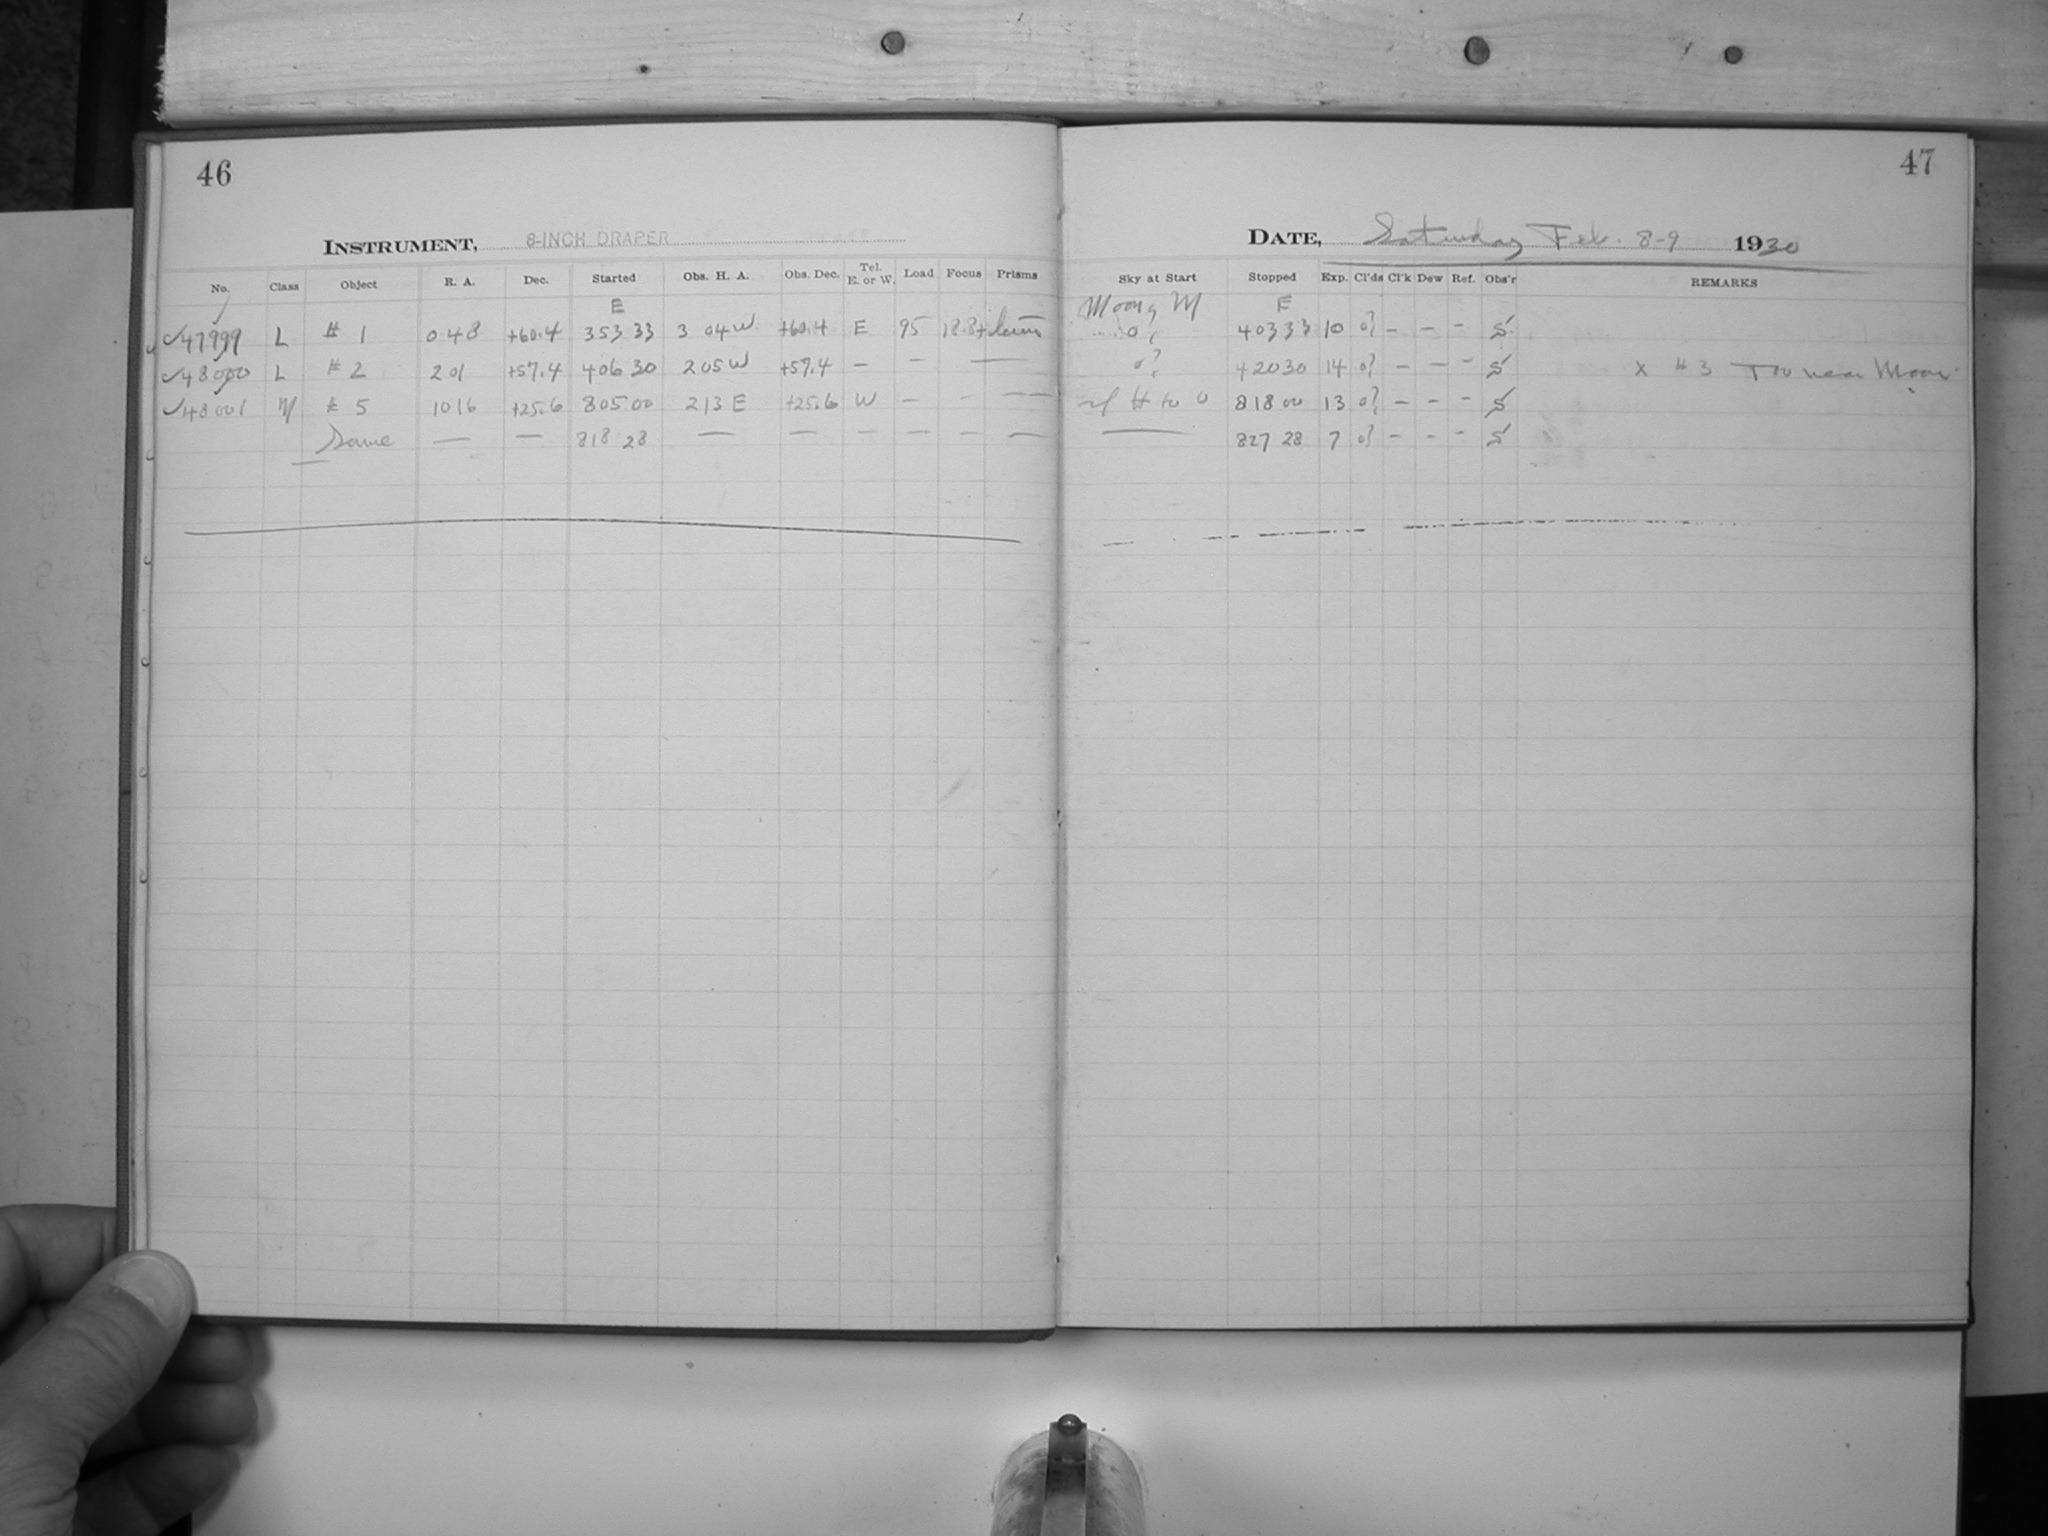 46
INSTRUMENT, 8-INCH DRAPER
No. Class Object R. A. Dec. Started Obs. H. A. Obs. Dec. Tel. E. or W. Load Focus Prisms
E
47999 L # 1 0 48 +60.4 353 33 3 04 W +60.4 E 95
48000 L # 2 2 01 +57.4 406 30 2 05 W +57.4 — — —
48001 M # 5 10 16 +25.6 805 00 2 13 E +25.6 W — - —
Same — — 818 28 — — — — — —
47
DATE, Saturday Feb. 8-9 1930
Sky at Start Stopped Exp. Cl'ds Cl'k Dew Ref. Obs'r REMARKS
E
403 33 10 0? - - - S.
0? 420 30 14 0? - - - S x # 3 Too near Moon
818 00 13 0? - - - S
— 827 28 7 0? - - - S